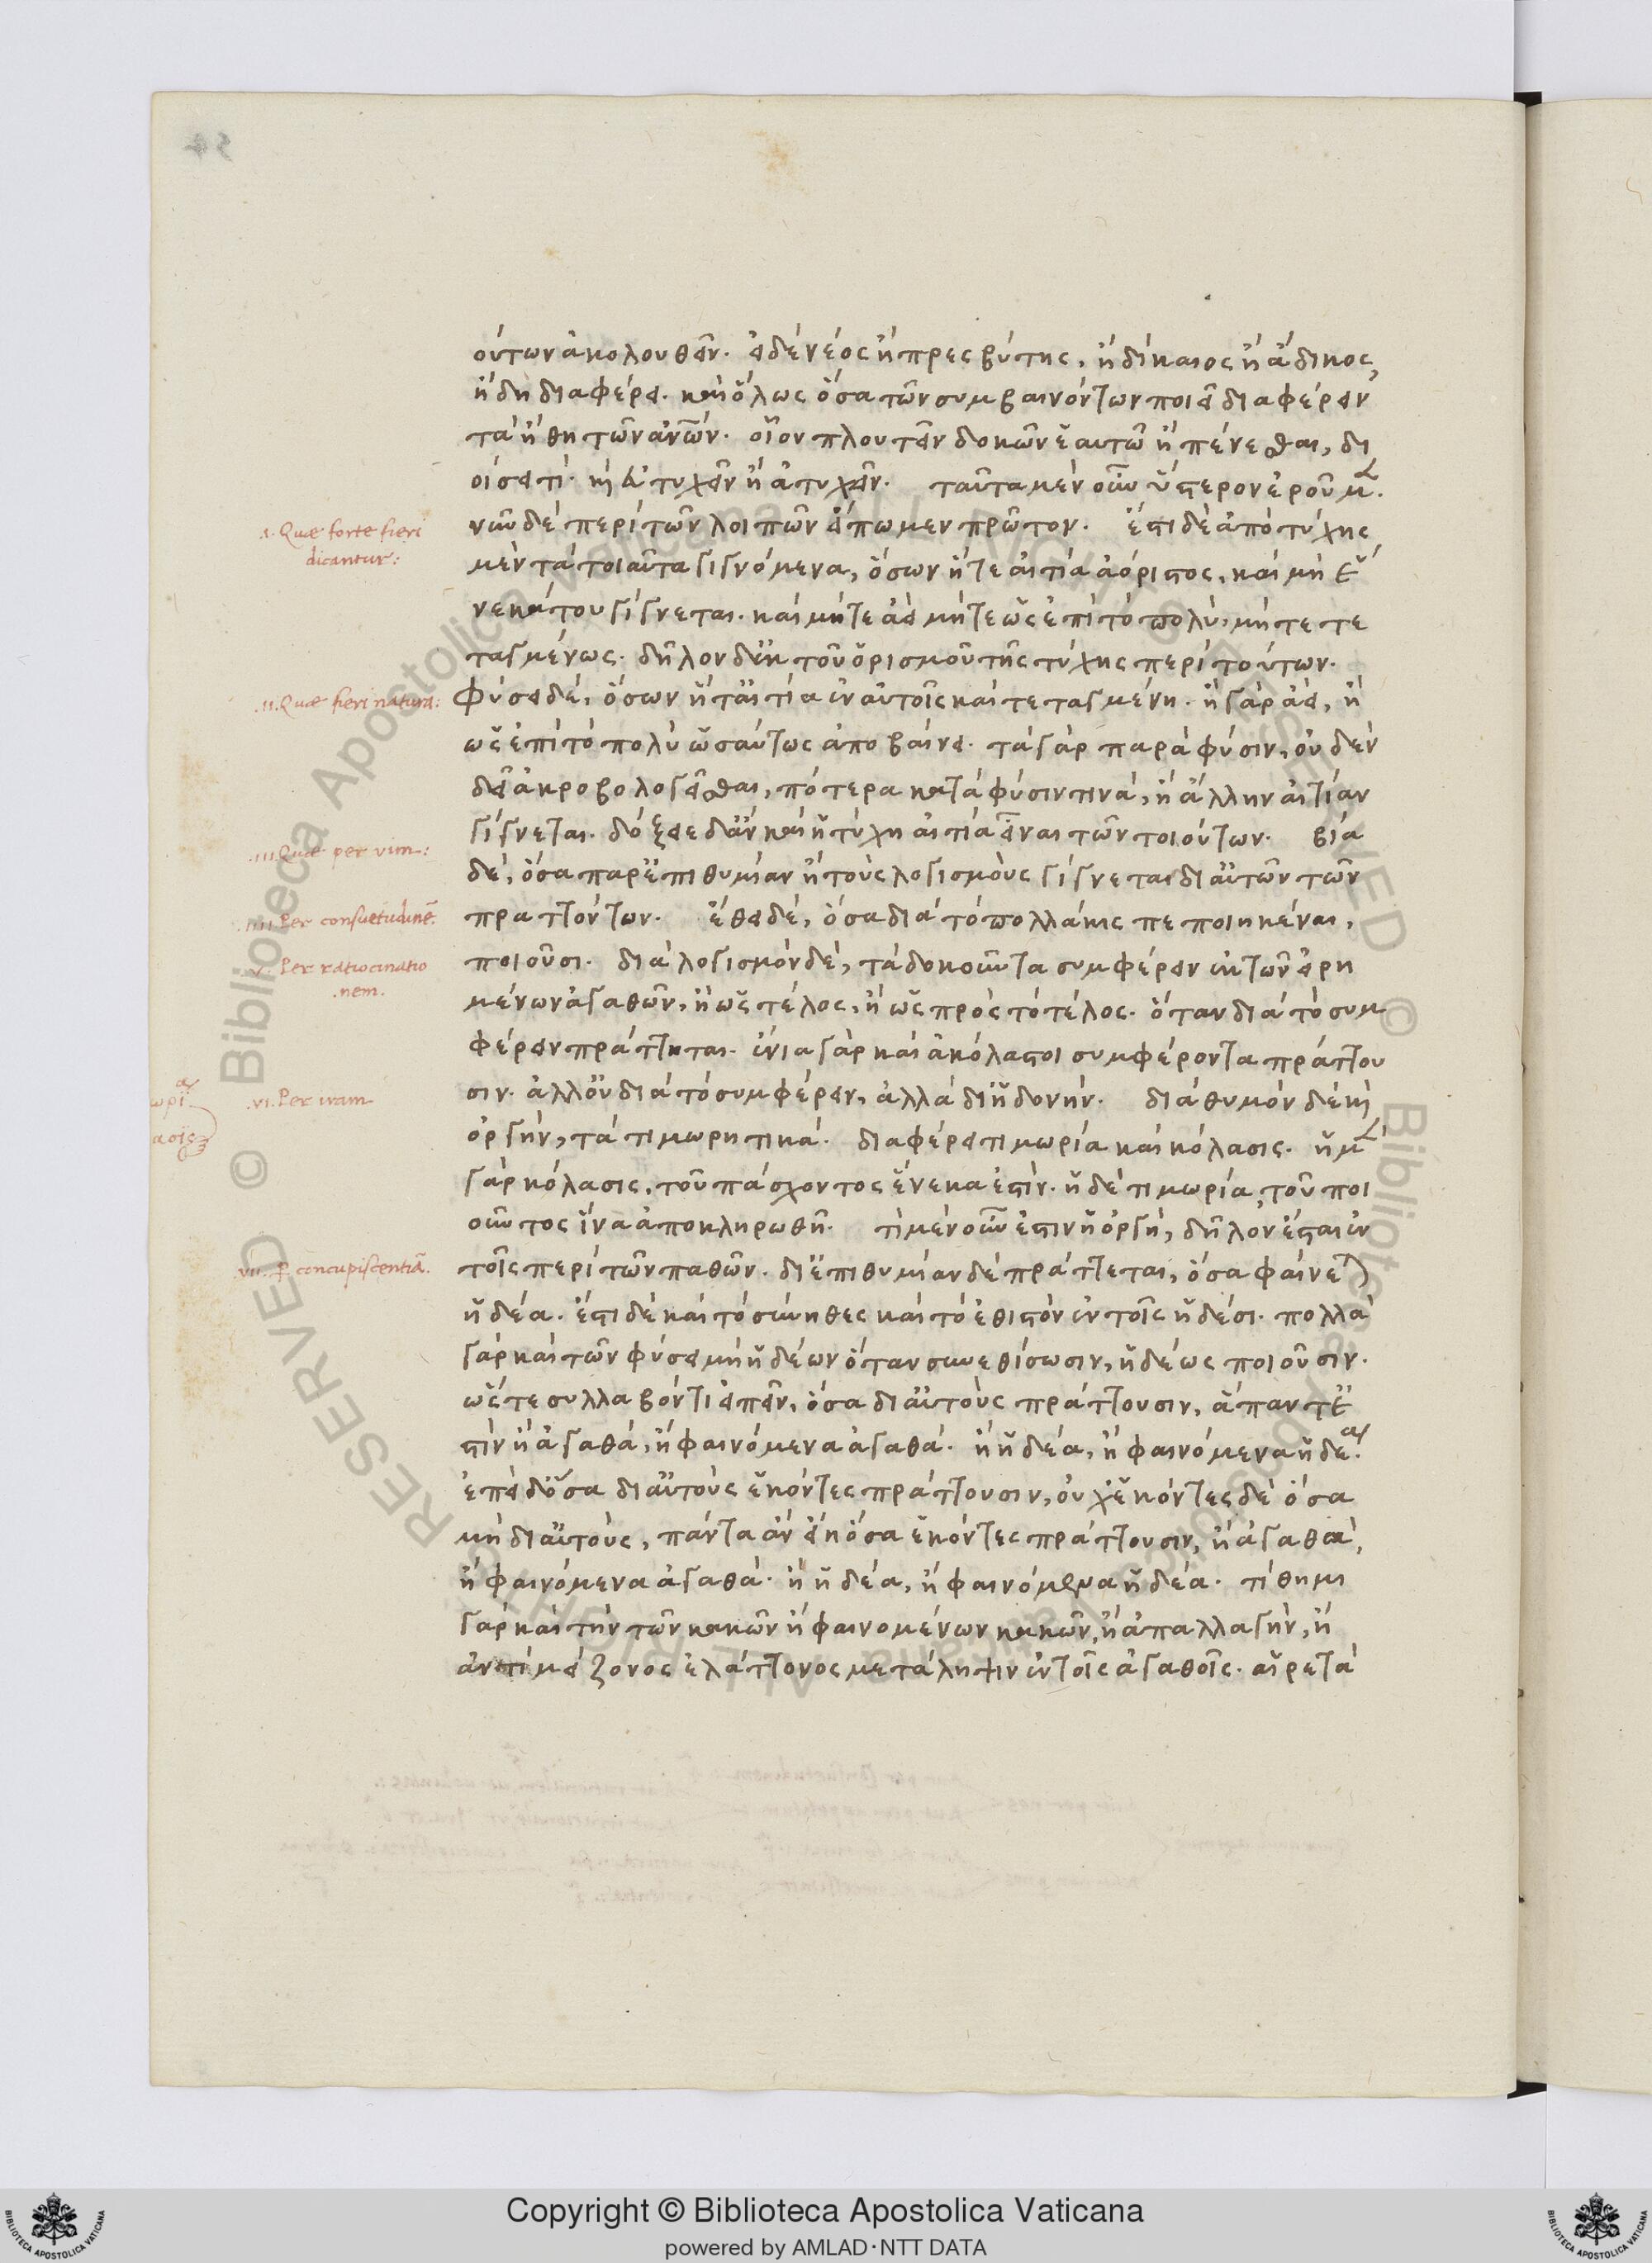 ούτων ἀκολουθεῖν. εἰ δὲ νέος ἢ πρεσβύτης, ἢ δίκαιος ἢ ἄδικος,
ἤδη διαφέρει. καὶ ὅλως ὅσα τῶν συμβαινόντων ποιεῖ διαφέρειν
τὰ ἤθη τῶν ἀνῶν. οἷον πλουτεῖν δοκῶν ἑαυτῷ ἢ πένεσθαι, δι
οίσει τί. καὶ εὐτυχεῖν ἢ ἀτυχεῖν. ταῦτα μὲν οὖν ὕστερον ἐροῦμ.
νῦν δὲ περὶ τῶν λοιπῶν εἴπωμεν πρῶτον. ἔστι δὲ ἀπὸ τύχης
μὲν τὰ τοιαῦτα γιγνόμενα, ὅσων ἥ τε αἰτία ἀόριστος, καὶ μὴ ἕ
νεκά του γίγνεται. καὶ μήτε ἀεὶ μήτε ὡς ἐπὶ τὸ πολὺ, μήτε τε
ταγμένως. δῆλον δ' ἐκ τοῦ ὁρισμοῦ τῆς τύχης περὶ τούτων.
φύσει δὲ, ὅσων ἥ τ' αἰτία ἐν αὐτοῖς καὶ τεταγμένη. ἢ γὰρ ἀεὶ, ἢ
ὡς ἐπὶ τὸ πολὺ ὡσαύτως ἀποβαίνει. τὰ γὰρ παρὰ φύσιν, οὐδὲν
δεῖ ἀκροβολογεῖσθαι, πότερα κατὰ φύσιν τινὰ, ἢ ἄλλην αἰτίαν
γίγνεται. δόξειε δ' ἂν καὶ ἡ τύχη αἰτία εἶναι τῶν τοιούτων. βίᾳ
δὲ, ὅσα παρ' ἐπιθυμίαν ἢ τοὺς λογισμοὺς γίγνεται δι' αὐτῶν τῶν
πραττόντων. ἔθει δὲ, ὅσα διὰ τὸ πολλάκις πεποιηκέναι,
ποιοῦσι. διὰ λογισμὸν δὲ, τὰ δοκοῦντα συμφέρειν ἐκ τῶν εἰρη
μένων ἀγαθῶν, ἢ ὡς τέλος, ἢ ὡς πρὸς τὸ τέλος. ὅταν διὰ τὸ συμ
φέρειν πράττηται. ἔνια γὰρ καὶ ἀκόλαστοι συμφέροντα πράττου
σιν. ἀλλ' οὐ διὰ τὸ συμφέρειν, ἀλλὰ δι' ἡδονήν. διὰ θυμὸν δὲ καὶ
ὀργὴν, τὰ τιμωρητικά. διαφέρει τιμωρία καὶ κόλασις. ἡ μ
γὰρ κόλασις, τοῦ πάσχοντος ἕνεκα ἐστίν. ἡ δὲ τιμωρία, τοῦ ποι
οῦντος ἵνα ἀποκληρωθῇ. τί μὲν οὖν ἐστιν ἡ ὀργὴ, δῆλον ἔσται ἐν
τοῖς περὶ τῶν παθῶν. δι' ἐπιθυμίαν δὲ πράττεται, ὅσα φαίνε
ἡδέα. ἔστι δὲ καὶ τὸ σύνηθες καὶ τὸ ἐθιστὸν ἐν τοῖς ἡδέσι. πολλὰ
γὰρ καὶ τῶν φύσει μὴ ἡδέων ὅταν συνεθίσωσιν, ἡδέως ποιοῦσιν.
ὥστε συλλαβόντι εἰπεῖν, ὅσα δι' αὐτοὺς πράττουσιν, ἅπαντ' ἐ
στὶν ἢ ἀγαθὰ, ἢ φαινόμενα ἀγαθά. ἢ ἡδέα, ἢ φαινόμενα ἡδέα.
ἐπεὶ δ' ὅσα δι' αὐτοὺς ἑκόντες πράττουσιν, οὐχ ἑκόντες δὲ ὅσα
μὴ δι' αὐτοὺς, πάντα ἂν εἴη ὅσα ἑκόντες πράττουσιν, ἢ ἀγαθὰ,
ἢ φαινόμενα ἀγαθά. ἢ ἡδέα, ἢ φαινόμενα ἡδέα. τίθημι
γὰρ καὶ τὴν τῶν κακῶν ἢ φαινομένων κακῶν, ἢ ἀπαλλαγὴν, ἢ
ἀντὶ μείζονος ἐλάττονος μετάληψιν ἐν τοῖς ἀγαθοῖς. αἱρετὰ
.I. Quae forte fieri
dicantur:
.II. Quae fieri natura:
.III. Quae per vim:
.IIII. Per consuetudinē.
.V. Per ratiocinatio
.nem.
.VI. Per iram
.VII. ꝑ concupiscentiā.
© Biblioteca Apostolica Vaticana ALL RIGHTS RESERVED
Copyright © Biblioteca Apostolica Vaticana
powered by AMLAD·NTT DATA
BIBLIOTECA APOSTOLICA VATICANA
BIBLIOTECA APOSTOLICA VATICANA